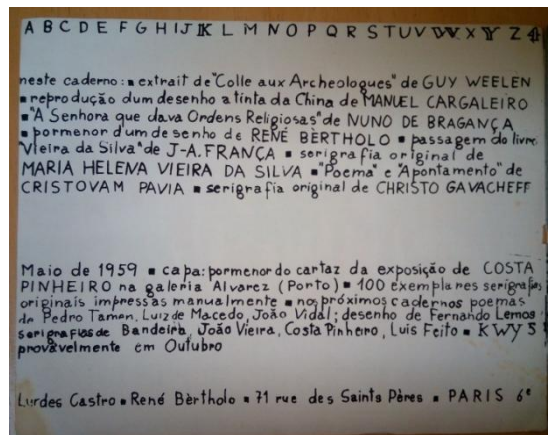 A B C D E F G H I J K L M N O P Q R S T U V W X Y Z 4
neste caderno: ▪ extrait de "Colle aux Archeologues" de GUY WEELEN
▪ reprodução dum desenho a tinta da China de MANUEL CARGALEIRO
▪ "A Senhora que dava Ordens Religiosas" de NUNO DE BRAGANÇA
▪ pormenor d'um desenho de RENÉ BÈRTHOLO ▪ passagem do livro
"Vieira da Silva" de J-A. FRANÇA ▪ serigrafia original de
MARIA HELENA VIEIRA DA SILVA ▪ "Poema" e "Apontamento" de
CRISTOVAM PAVIA ▪ serigrafia original de CHRISTO GAVACHEFF
Maio de 1959 ▪ capa: pormenor do cartaz da exposição de COSTA
PINHEIRO na galeria Alvarez (Porto) ▪ 100 exemplares serigrafias
originais impressas manualmente ▪ nos próximos cadernos poemas
de Pedro Tamen, Luiz de Macedo, João Vidal; desenho de Fernando Lemos
serigrafias de Bandeira, João Vieira, Costa Pinheiro, Luis Feito ▪ KWY 5
provàvelmente em Outubro
Lurdes Castro ▪ René Bèrtholo ▪ 71 rue des Saints Pères ▪ PARIS 6e